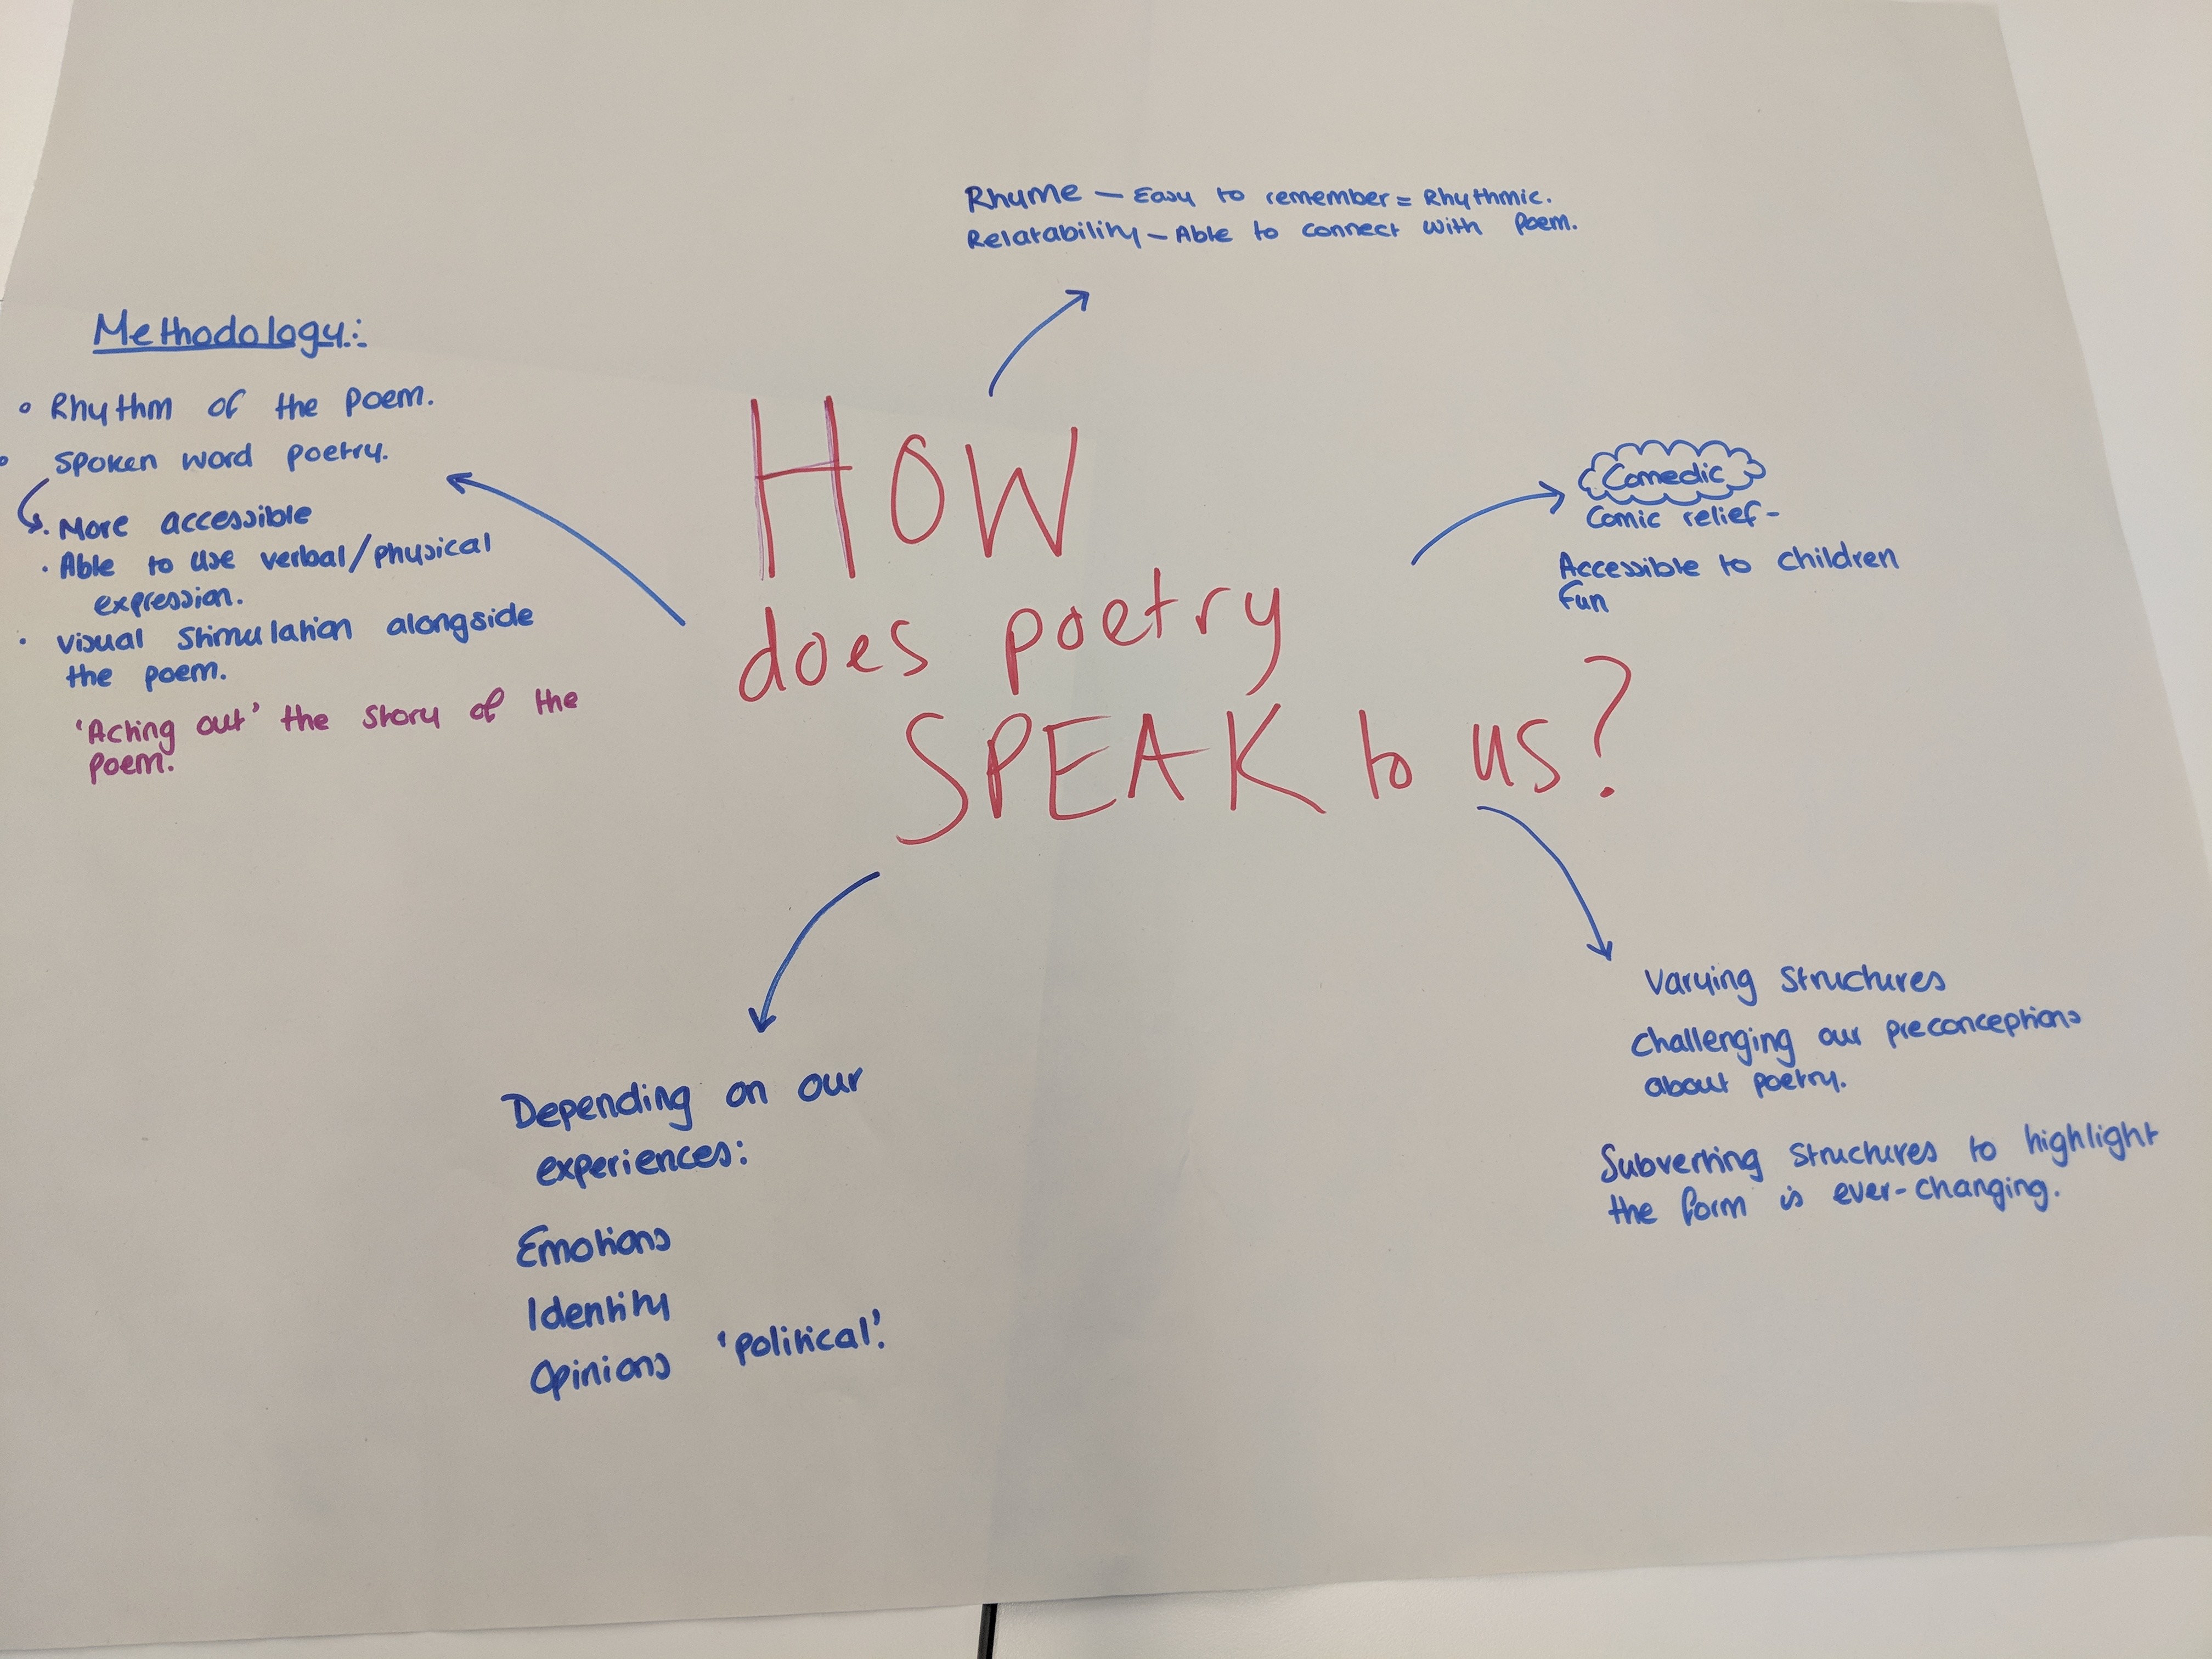 Rhyme — Easy to remember = Rhythmic.
Relatability — Able to connect with Poem.
Methodology:
Rhythm of the poem.
Spoken word poetry.
More accessible
Able to use verbal/physical
expression.
Visual stimulation alongside
the poem.
'Acting out' the story of the
poem.
HOW
does poetry
SPEAK to us?
Comedic
Comic relief -
Accessible to children
Fun
Depending on our
experiences:
Emotions
Identity
Opinions 'political'.
Varying structures
challenging our preconceptions
about poetry.
Subverting structures to highlight
the form is ever-changing.